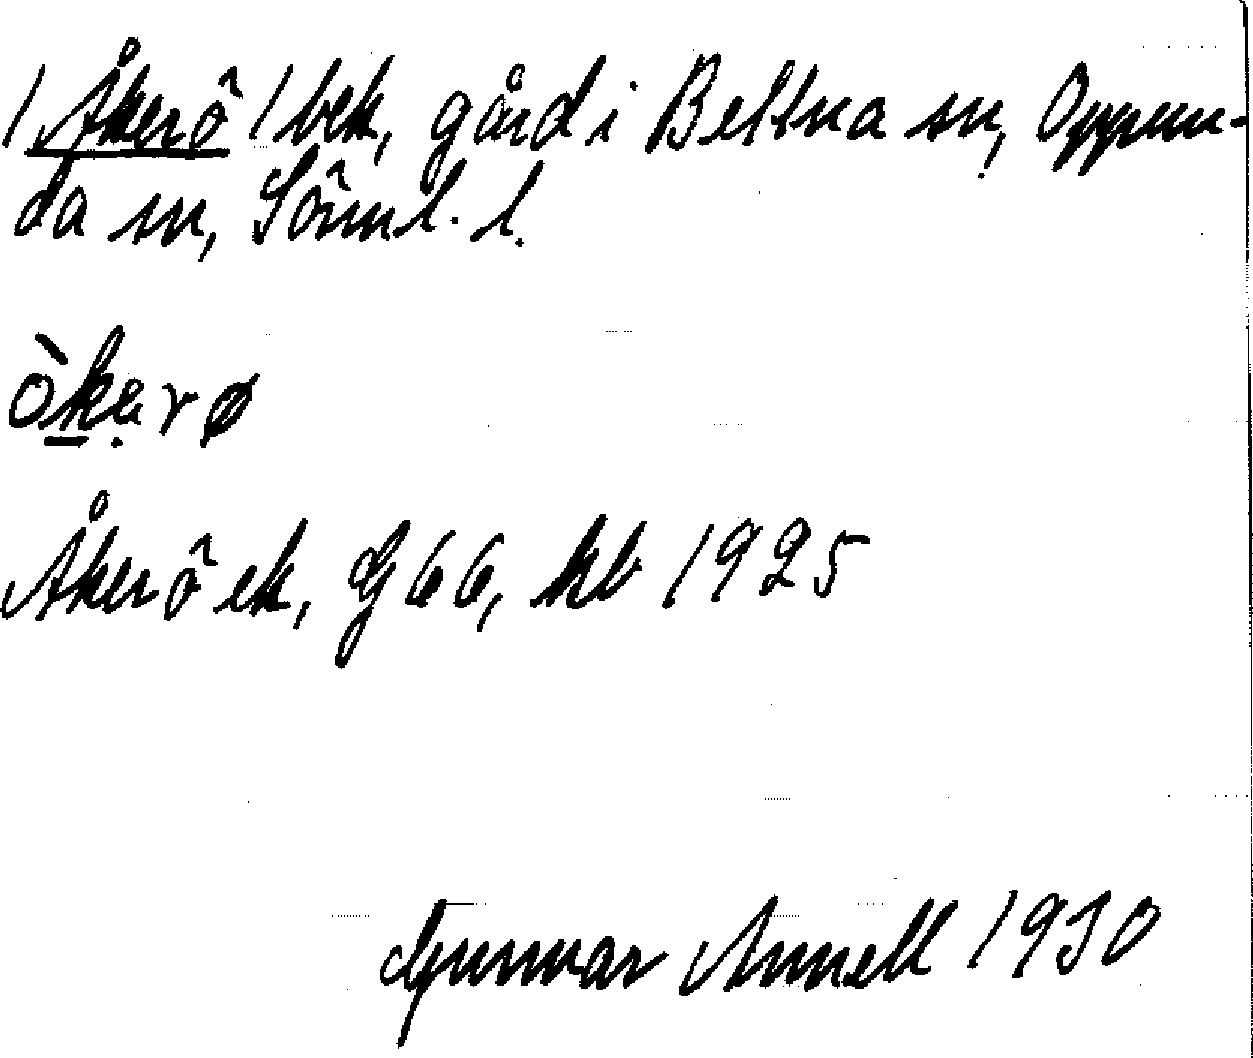 / Åkerö / bek, gård i Bettna sn, Oppun-
da sn, Sörml. l.
òkerø
Åkerö ek, G 66, kb 1925
Gunnar Annell 1930